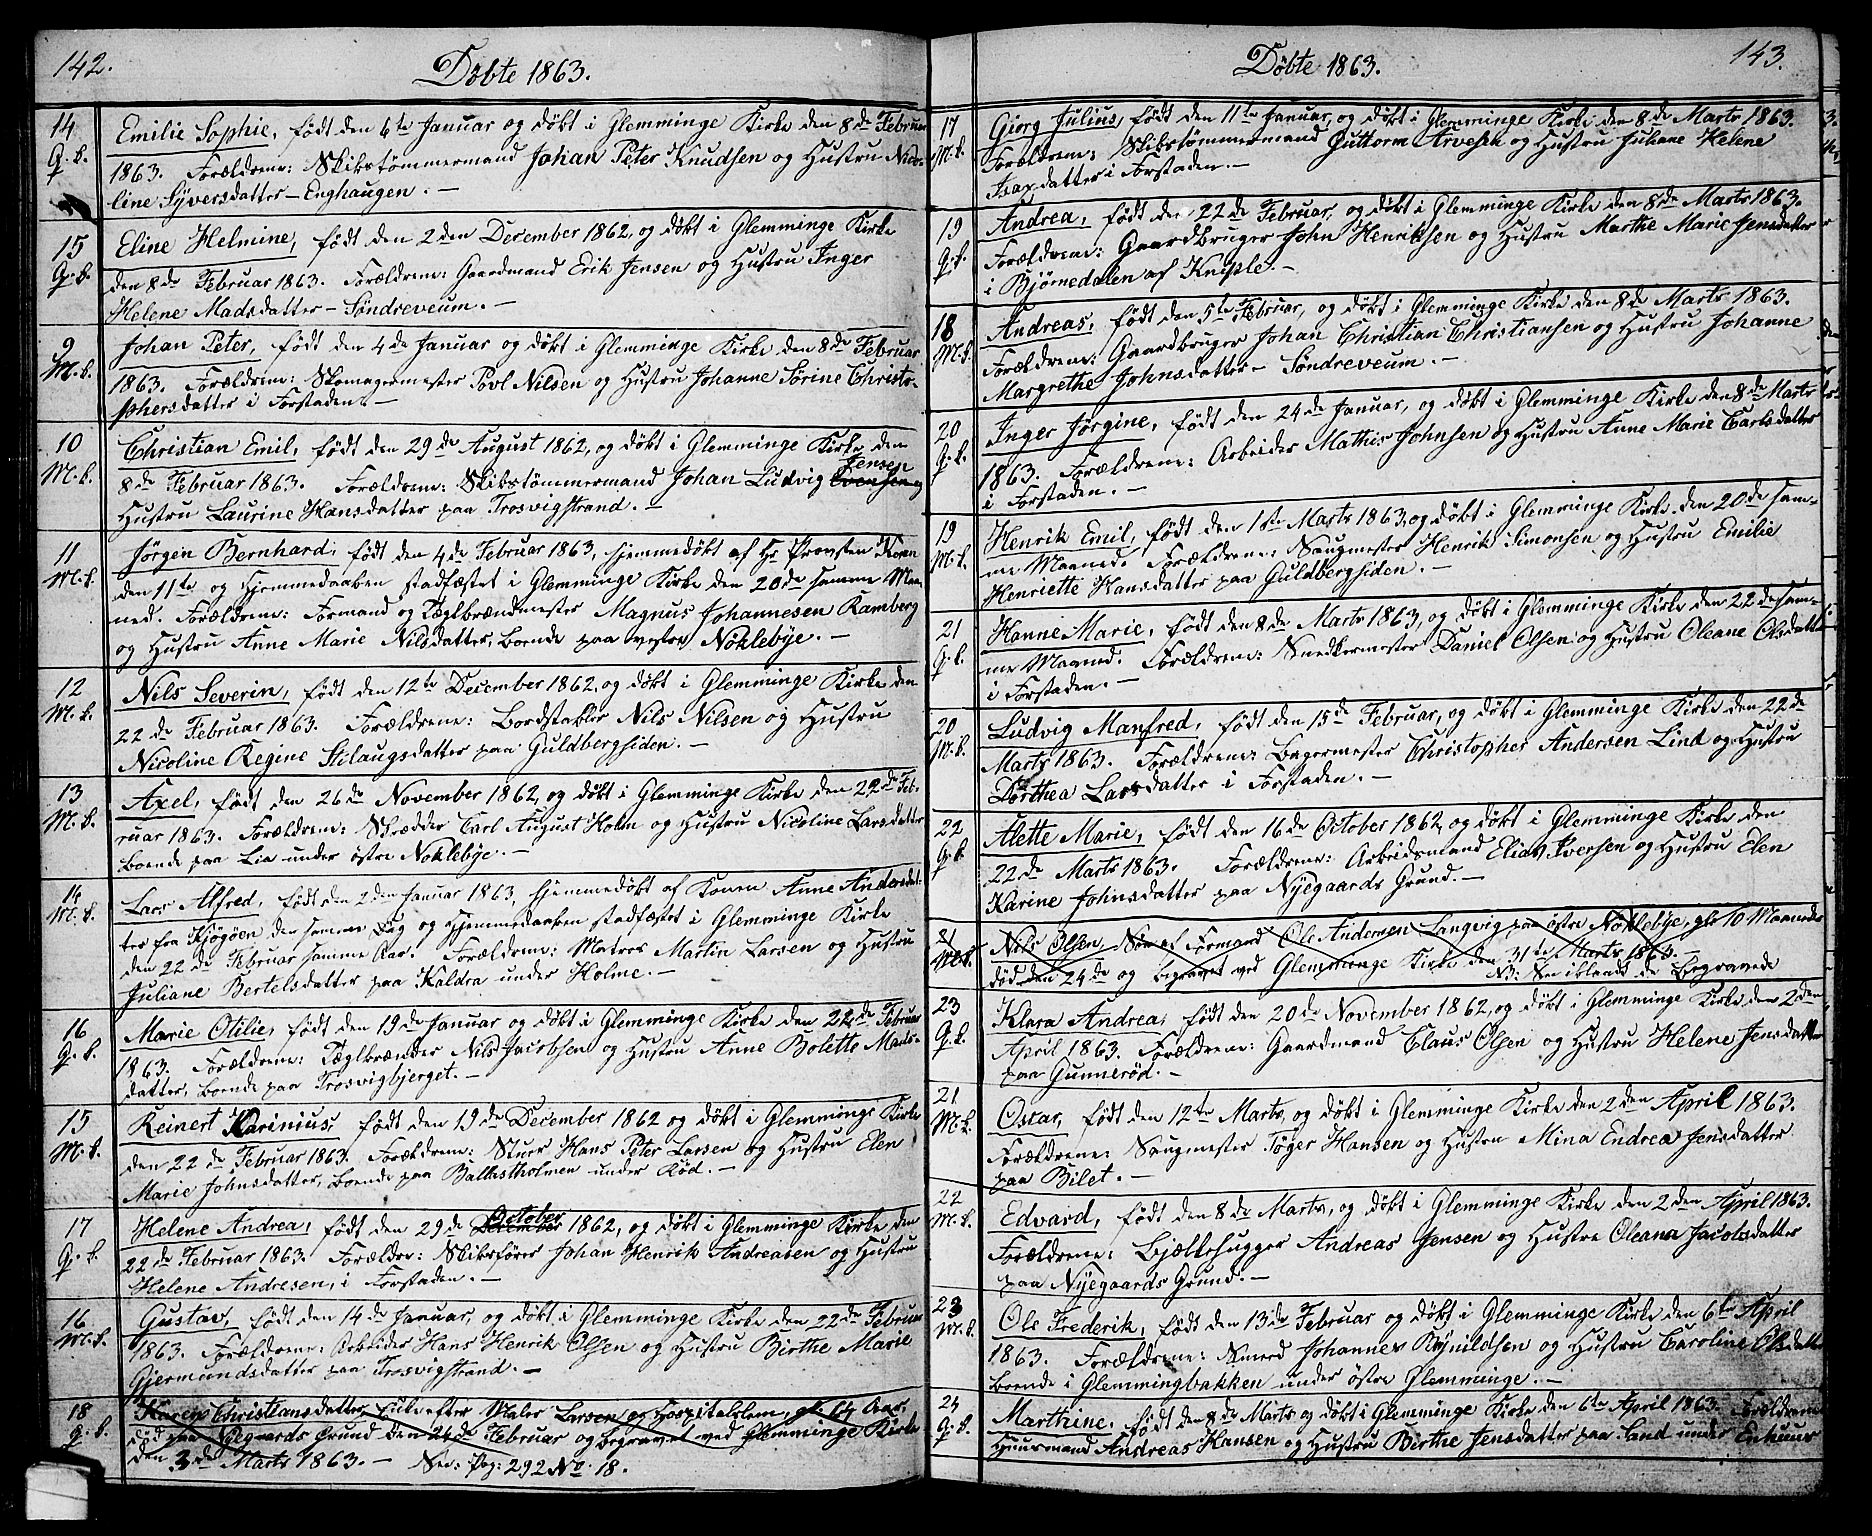 142.
Döbte 1863.
14
Q. k.
Emilie Sophie, født den 6te Januar og døbt i Glemminge Kirke den 8de Februar
1863. Forældrene: Skibstømmermand Johan Peter Knudsen og Hustru Nico-
line Syversdatter - Enghaugen. -
15
Q. k.
Eline Helmine, født den 2den December 1862, og døbt i Glemminge Kirke
den 8de Februar 1863. Forældrene: Gaardmand Erik Jensen og Hustru Inger
Helene Madsdatter - Søndreveum. -
9
M. k.
Johan Peter, født den 4de Januar og døbt i Glemminge Kirke den 8de Februar
1863. Forældrene: Skomagermester Povl Nilsen og Hustru Johanne Sørine Christo-
phersdatter i Forstaden. -
10
M. k.
Christian Emil, født den 29de August 1862, og døbt i Glemminge Kirke den
8de Februar 1863. Forældrene: Skibstømmermand Johan Ludvig Jensen og
Hustru Laurine Hansdatter paa Trosvigstrand. -
11
M. k.
Jörgen Bernhard, født den 4de Februar 1863, hjemmedøbt af Hr Provsten Koren
den 11te og Hjemmedaaben stadfæstet i Glemminge Kirke den 20de samme Maa-
ned. Forældrene: Formand og Teglbrændmester Magnus Johannesen Kamberg
og Hustru Anne Marie Nilsdatter, boende paa vestre Noklebye. -
12
M. k.
Nils Severin, født den 12te December 1862, og døbt i Glemminge Kirke den
22de Februar 1863. Forældrene: Bordstabler Nils Nilsen og Hustru
Nicoline Regine Stilaugsdatter paa Guldbergsiden. -
13
M. k.
Axel, født den 26de November 1862, og døbt i Glemminge Kirke den 22de Feb-
ruar 1863. Forældrene: Skrædder Carl August Holm og Hustru Nicoline Larsdatter
boende paa Lie under østre Noklebye. -
14
M. k.
Lars Alfred, født den 2den Januar 1863, hjemmedøbt af Konen Anne Andersdat-
ter fra Kjøgøen den samme Dag og Hjemmedaaben stadfæstet i Glemminge Kirke
den 22de Februar samme Aar. Forældrene: Matros Martin Larsen og Hustru
Juliane Bertelsdatter paa Kaldra under Holme. -
16
Q. k.
Marie Otilie, født den 19de Januar og døbt i Glemminge Kirke den 22de Februar
1863. Forældrene: Teglbrænder Nils Jacobsen og Hustru Anne Bolette Mads-
datter, boende paa Trosvigbjerget. -
15
M. k.
Reinert Karinius, født den 19de December 1862 og døbt i Glemminge Kirke
den 22de Februar 1863. Forældrene: Stuer Hans Peter Larsen og Hustr Elen
Marie Johnsdatter, boende paa Ballastholmen under Rød. -
17
Q. k.
Helene Andrea, født den 29de October 1862, og døbt i Glemminge Kirke den
22de Februar 1863. Forældre: Skibsfører Johan Henrik Andreasen og Hustru
Helene Andresen, i Forstaden. -
16
M. k.
Gustav, født den 14de Januar, og døbt i Glemminge Kirke den 22de Februar
1863. Forældrene: Arbeider Hans Henrik Olsen og Hustru Birthe Marie
Gjermundsdatter paa Trosvigstrand. -
18
Q. k.
Karen Christiansdatter, Enke efter Maler Larsen og Hospitalslem, gl. 64 Aar,
død paa Nyegaards Grund den 24de Februar og begravet ved Glemminge Kirke
den 3de Marts 1863. - See: Pag: 292 No 18.
143.
Döbte 1863.
17
M. k.
Gjorg Julius, født den 11te Januar, og døbt i Glemminge Kirke den 8de Marts 1863.
Forældrene: Skibstømmermand Guttorm Arvesen og Hustru Juliane Helene
Isaxdatter i Forstaden. -
19
Q. k.
Andrea, født den 22de Februar, og døbt i Glemminge Kirke den 8de Marts 1863.
Forældrene: Gaardbruger John Henriksen og Hustru Marthe Marie Jensdatter
i Bjørnedalen af Kniple. -
18
M. k.
Andreas, født den 5te Februar, og døbt i Glemminge Kirke den 8de Marts 1863.
Forældrene: Gaardbruger Johan Christian Christiansen og Hustru Johanne
Margrethe Johnsdatter - Søndreveum. -
20
Q. k.
Inger Jörgine, født den 24de Januar, og døbt i Glemminge Kirke den 8de Marts
1863. Forældrene: Arbeider Mathis Johnsen og Hustru Anne Marie Carlsdatter
i Forstaden. -
19
M. k.
Henrik Emil, født den 1ste Marts 1863, og døbt i Glemminge Kirke den 20de sam-
me Maaned. Forældrene: Saugmester Henrik Simonsen og Hustru Emilie
Henriette Hansdatter paa Guldbergsiden. -
21
Q. k.
Hanne Marie, født den 8de Marts 1863, og døbt i Glemminge Kirke den 22de sam-
me Maaned. Forældrene: Snedkermester Daniel Olsen og Hustru Oleane Olsdatter
i Forstaden. -
20
M. k.
Ludvig Manfred, født den 15de Februar, og døbt i Glemminge Kirke den 22de
Marts 1863. Forældrene: Bagermester Christopher Andersen Lind og Hustru
Dorthea Larsdatter i Forstaden. -
22
Q. k.
Alette Marie, født den 16de October 1862, og døbt i Glemminge Kirke den
22de Marts 1863. Forældrene: Arbeidsmand Elias Iversen og Hustru Elen
Karine Johnsdatter paa Nyegaards Grund. -
21
M. k.
Nils Olsen, Søn af Formand Ole Andersen Langvig paa østre Nöklebye, gl. 10 Maaneder
død den 24de og begravet ved Glemminge Kirke den 31te Marts 1863.
NB: See iblandt de Begravede
23
Q. k.
Klara Andrea, født den 20de November 1862, og døbt i Glemminge Kirke den 2den
April 1863. Forældrene: Gaardmand Claus Olsen og Hustru Helene Jensdatter
paa Gunnerød. -
21
M. k.
Oscar, født den 12te Marts, og døbt i Glemminge Kirke den 2den April 1863.
Forældrene: Saugmester Töger Hansen og Hustru Mina Endrea Jensdatter
paa Bilet. -
22
M. k.
Edvard, født den 8de Marts, og døbt i Glemminge Kirke den 2den April 1863.
Forældrene: Bjelkehugger Andreas Jensen og Hustru Oleana Jacobsdatter
paa Nyegaards Grund. -
23
M. k.
Ole Frederik, født den 13de Februar og døbt i Glemminge Kirke den 6te April
1863. Forældrene: Smed Johannes Bynildsen og Hustru Caroline Olsdatter
boende i Glemmingbakken under östre Glemminge. -
24
Q. k.
Marthine, født den 8de Marts og døbt i Glemminge Kirke den 6te April 1863. Forældrene
Huusmand Andreas Hansen og Hustru Birthe Jensdatter paa Sand under Enhuus